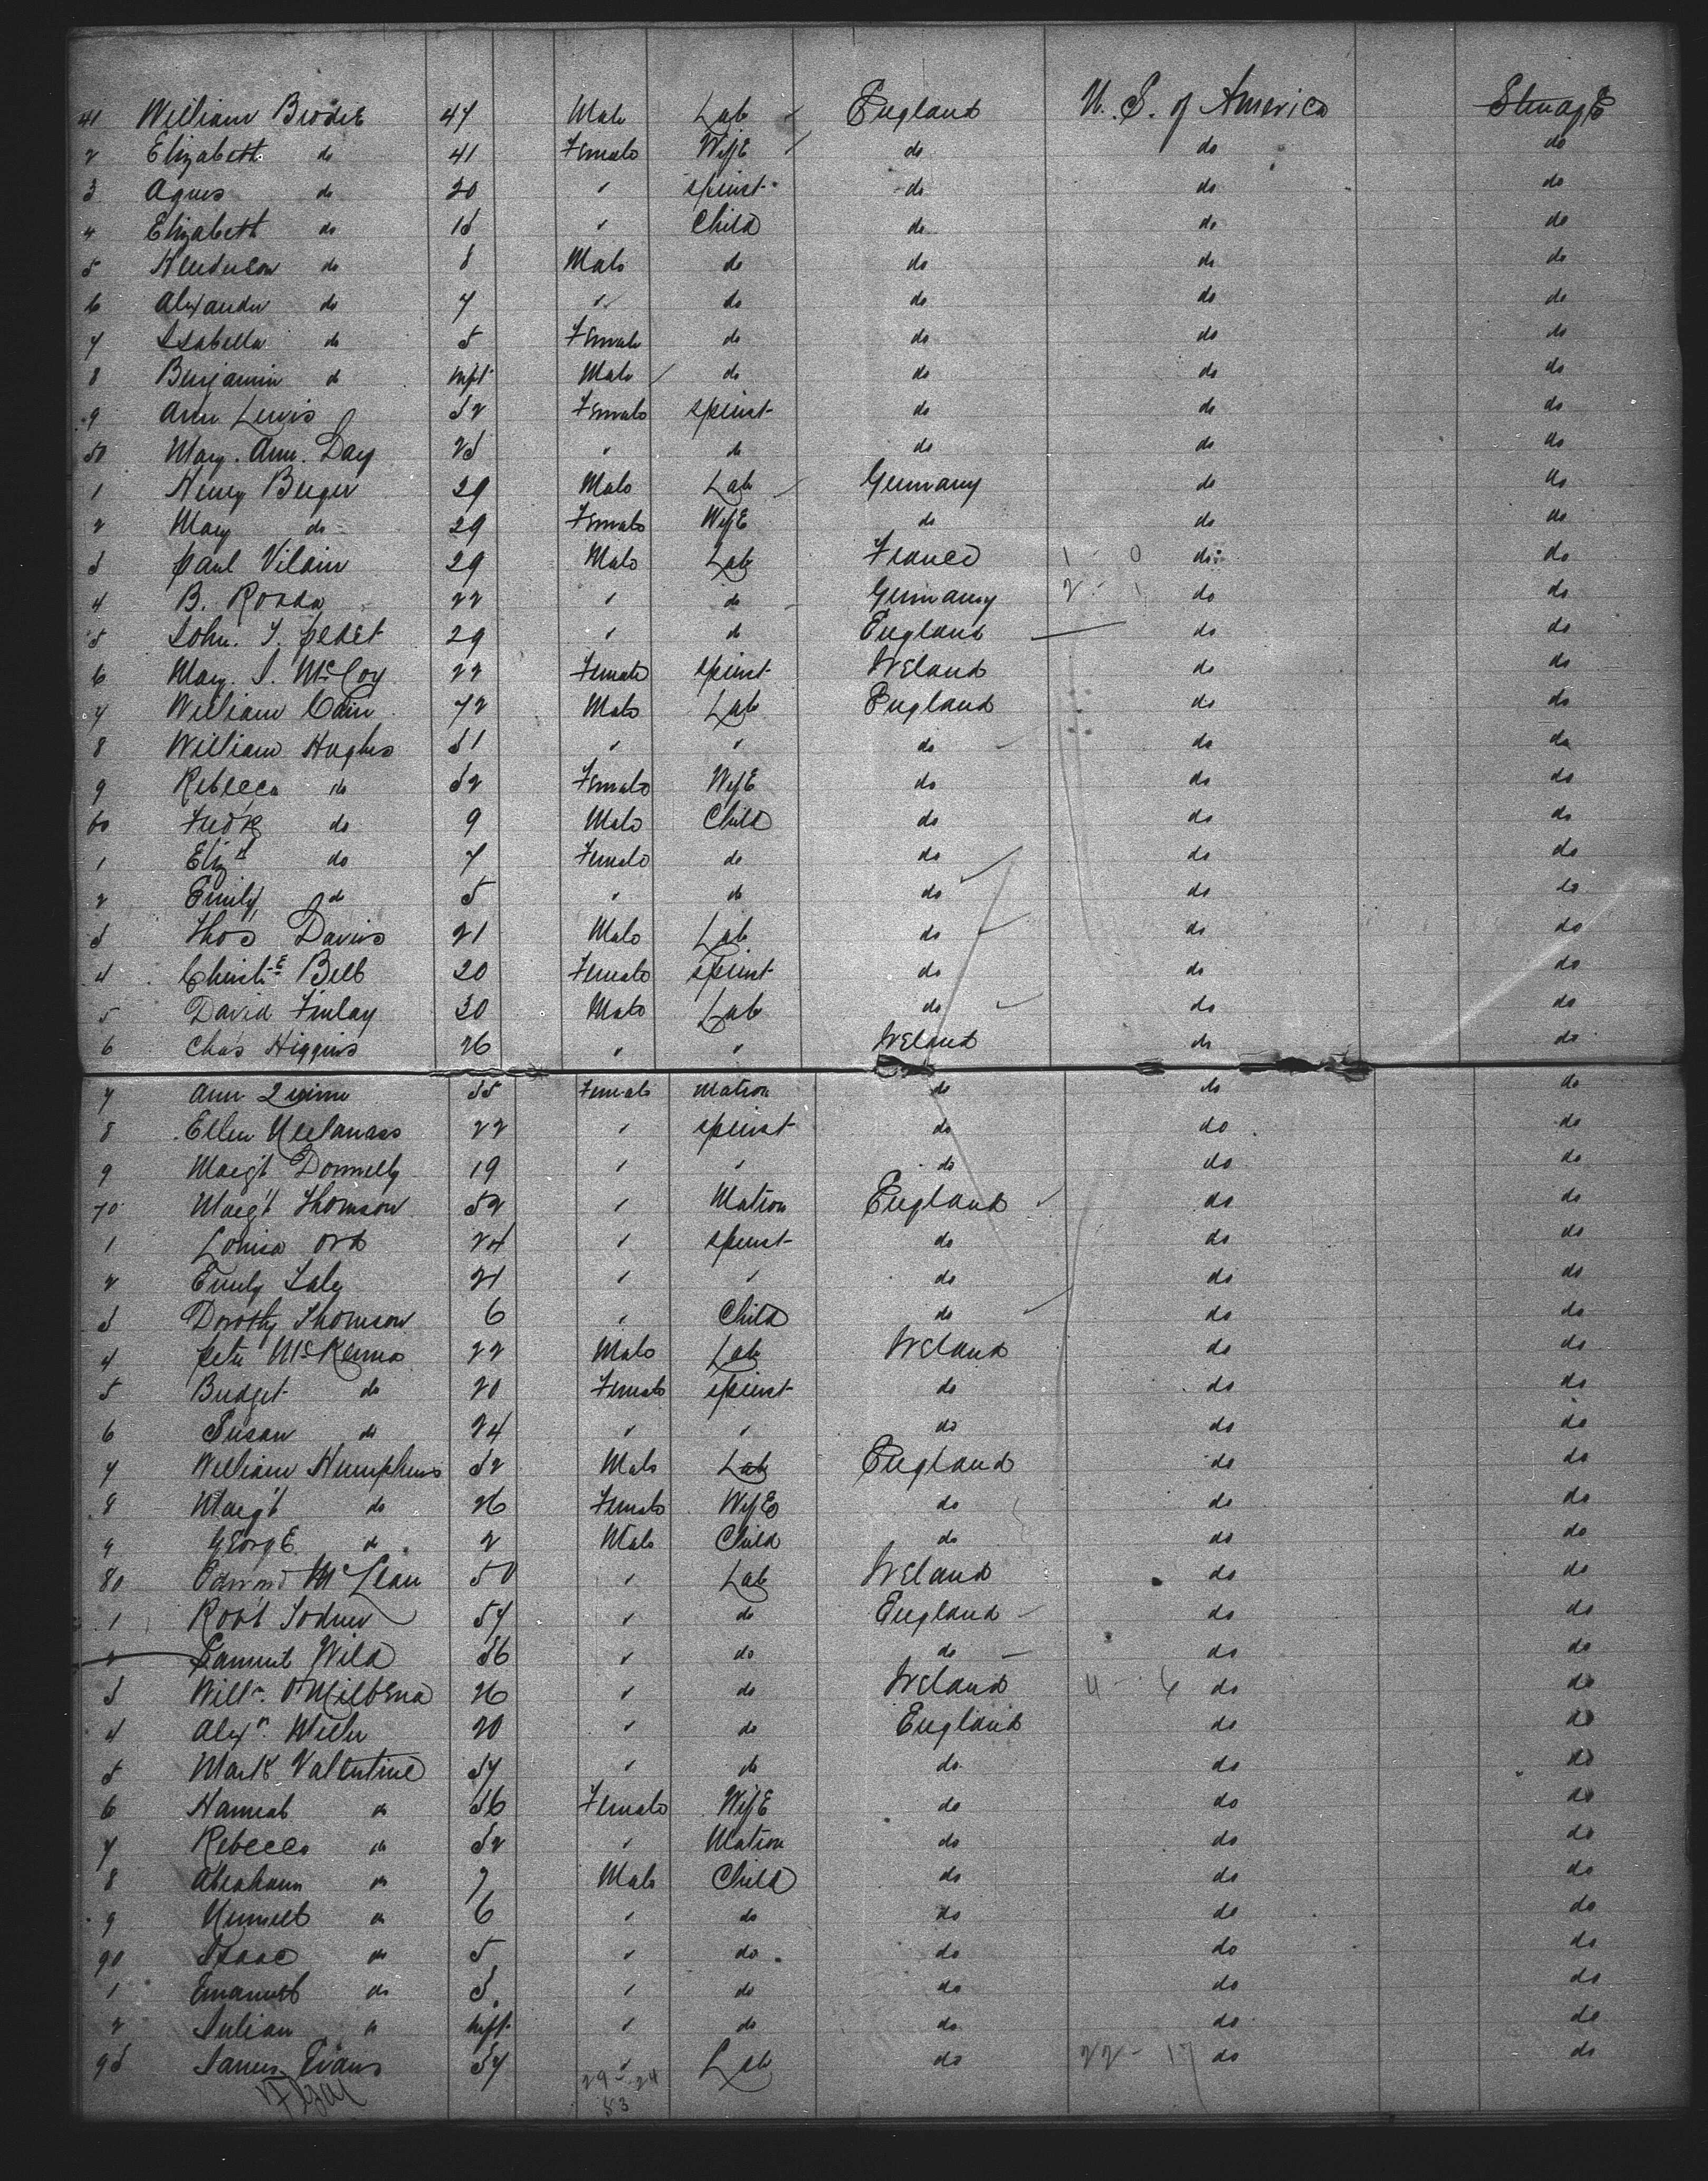 41 William Brodie 47 Male Lab England U. S. of America Steerage
2 Elizabeth do 41 Female Wife do do do
3 Agnes do 20 " Spinst do do do
4 Elizabeth do 13 " Child do do do
5 Henderson do 8 Male do do do do
6 Alexander do 7 " do do do do
7 Isabella do 5 Female do do do do
8 Benjamin do Inft Male do do do do
9 Ann Lewis 32 Female Spinst do do do
50 Mary. Ann. Day 23 " do do do do
1 Henry Berger 29 Male Lab Germany do do
2 Mary do 29 Female Wife do do do
3 Paul Vilain 29 Male Lab France 1 - 0 do do
4 B. 22 " do Germany 2 - 1 do do
5 John. T. 29 " do England do do
6 Mary. J. McCoy 22 Female Spinst Ireland do do
7 William Cain 72 Male Lab England do do
8 William Hughes 31 " " do do do
9 Rebecca do 32 Female Wife do do do
60 Fredk do 9 Male Child do do do
1 Elizth do 7 Female do do do do
2 Emily do 5 " do do do do
3 Thos Davies 21 Male Lab do do do
4 Christe Bell 20 Female Spinst do do do
5 David Finlay 30 Male Lab do do do
6 Chas Higgins 26 " " Ireland do do
7 Ann Quinn 35 Female Matron do do do
8 Ellen 22 " Spinst do do do
9 Margt Donnelly 19 " " do do do
70 Margt Thomson 52 " Matron England do do
1 Louisa Ord 24 " Spinst do do do
2 Emily 21 " " do do do
3 Dorothy Thomson 6 " Child do do do
4 Peter McKenna 22 Male Lab Ireland do do
5 Bridget do 20 Female Spinst do do do
6 Susan do 24 " " do do do
7 William Humphries 32 Male Lab England do do
8 Margt do 26 Female Wife do do do
9 George do 2 Male Child do do do
80 Edward McLean 50 " Lab Ireland do do
1 Robt 57 " do England do do
2 Samuel Wild 36 " do do do do
3 Willm. 26 " do Ireland 4 - 6 do do
4 Alexr. 20 " do England do do
5 Mark Valentine 37 " do do do do
6 Hannah do 36 Female Wife do do do
7 Rebecca do 32 " Matron do do do
8 Abraham do 7 Male Child do do do
9 do 6 " do do do do
90 Isaac do 5 " do do do do
1 Emanuel do 3 " do do do do
2 Julian do Inft " do do do do
93 James Evans 37 " Lab do 22 - 17 do do
29 - 24
53